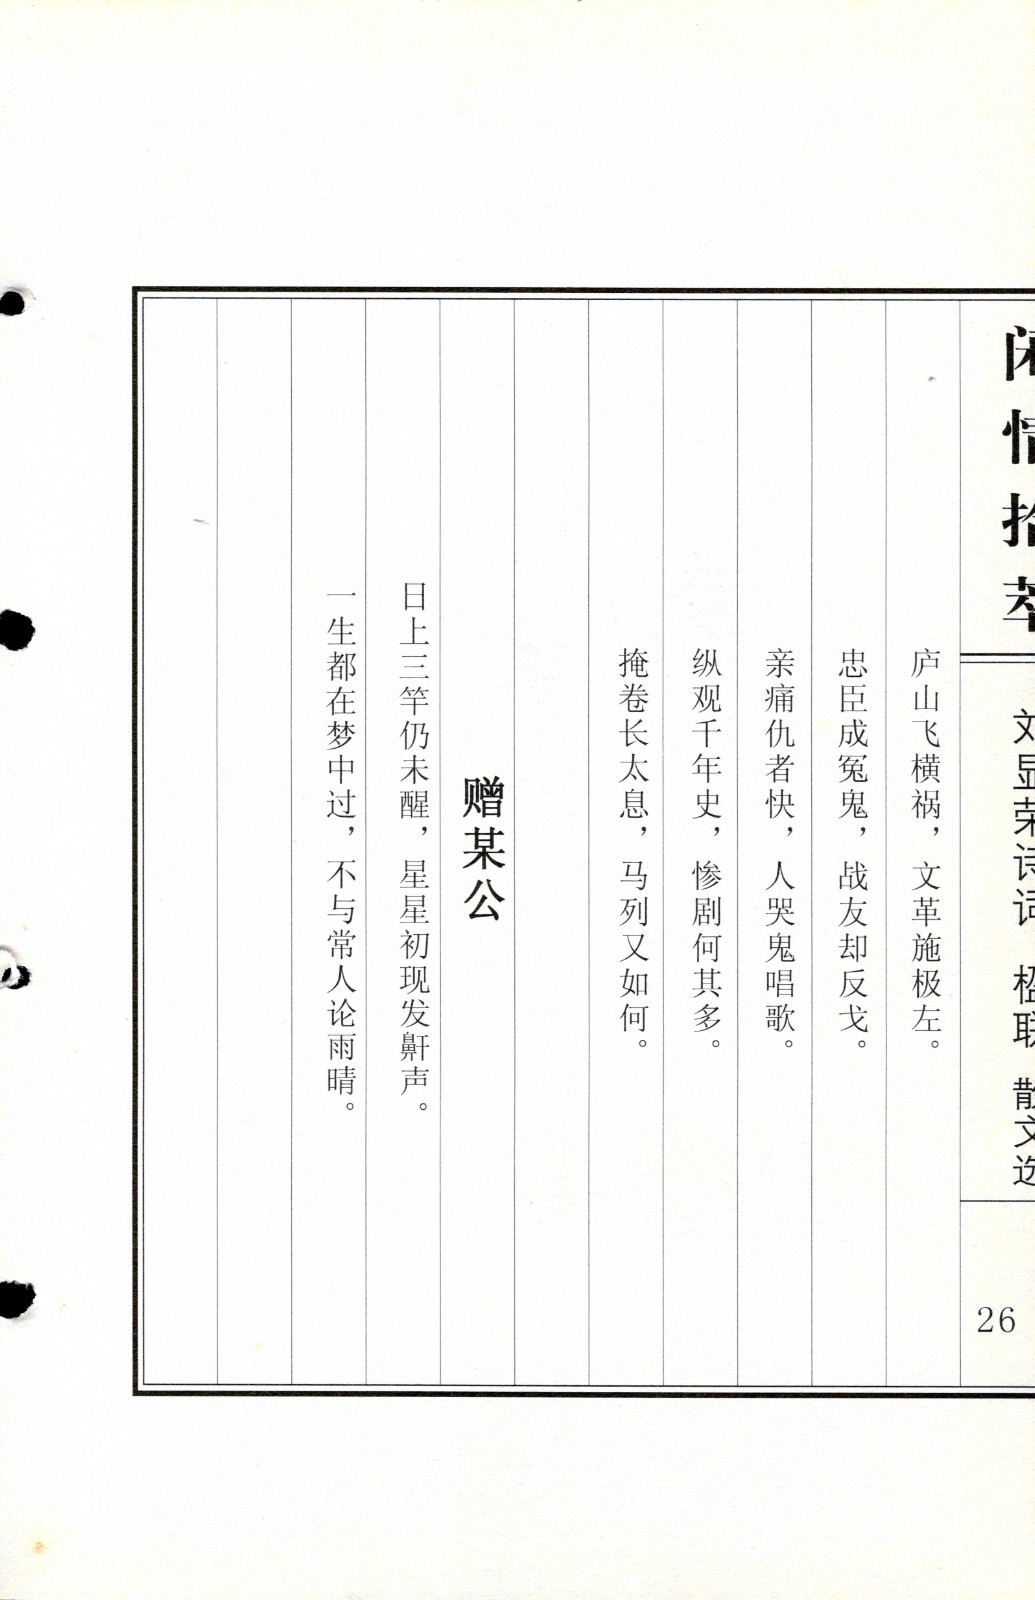 闲情拾萃
刘显荣诗词 楹联 散文选
26
庐山飞横祸，文革施极左。
忠臣成冤鬼，战友却反戈。
亲痛仇者快，人哭鬼唱歌。
纵观千年史，惨剧何其多。
掩卷长太息，马列又如何。
赠某公
日上三竿仍未醒，星星初现发鼾声。
一生都在梦中过，不与常人论雨晴。